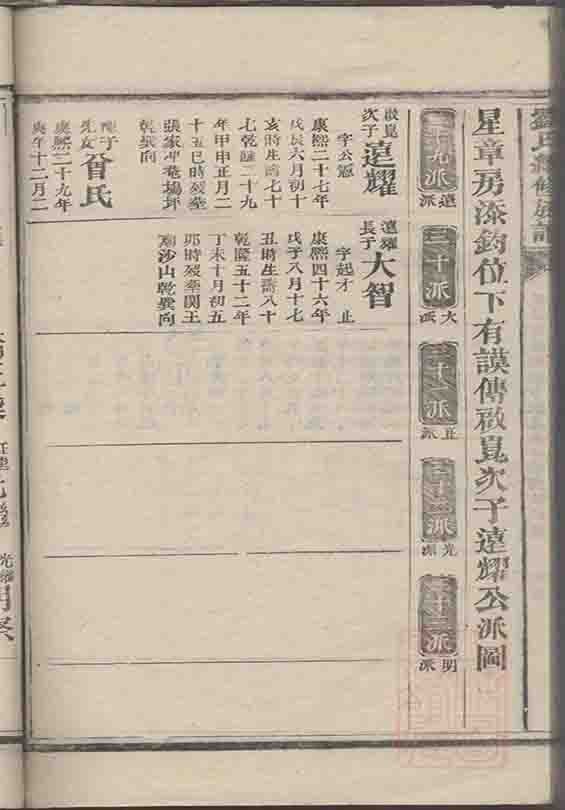 星章房添鈞位下有謨傳啟崑次子遠耀公派圖
二十九派
遠派
三十派
大派
三十一派
正派
三十二派
光派
三十三派
明派
啟崑次子
遠耀
字公憲
康熙二十七年
戊辰六月初十
亥時生壽七十
七乾隆二十九
年甲申正月二
十五巳時歿葬
張家冲菴場坪
乾巽向
曾氏
康熙二十九年
庚午十二月二
遠耀長子
大智
字起才 止
康熙四十六年
戊子八月十七
丑時生壽八十
乾隆五十二年
丁未十月初五
卯時歿葬関王
廟沙山乾巽向